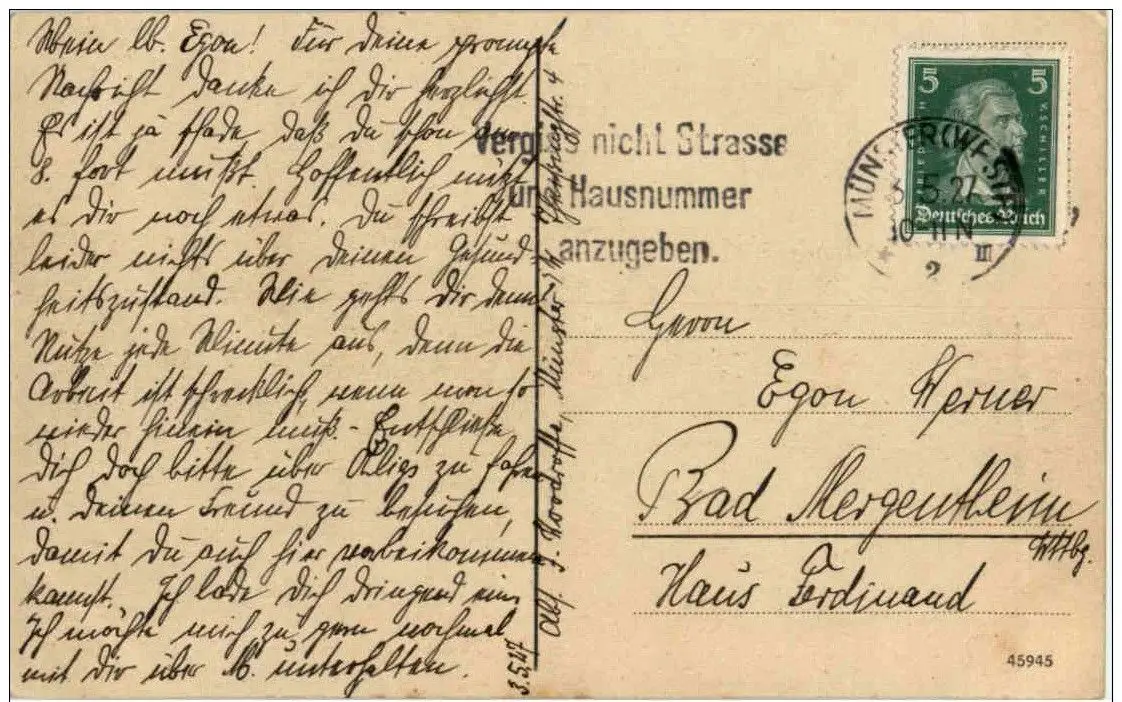 Mein lb. Egon! Für Deine prompte
Nachricht danke ich Dir herzlichst.
Es ist ja schade daß Du schon am
8. fort mußt. Hoffentlich nützt
es Dir noch etwas. Du schreibst
leider nichts über Deinen Gesund-
heitszustand. Wie gehts Dir denn?
Nütze jede Minute aus, denn die
Arbeit ist schrecklich, wenn man so
wieder hinein muß. - Entschließe
Dich doch bitte über zu fahren
u. Deinen Freund zu besuchen,
damit Du auch hier vorbeikommen
kannst. Ich lade Dich dringend ein.
Ich möchte mich zu gern nochmal
mit Dir über M. unterhalten.
3.5.27
Abs. F. Woodroffe, Münster i/W. 4
Vergiß nicht Strasse
und Hausnummer
anzugeben.
5 5
FRIEDRICH V. SCHILLER
Deutsches Reich
MÜNSTER (WESTF)
3.5.27
10-11 N
2 III
Herrn
Egon Werner
Bad Mergentheim
Wttbg.
Haus Ferdinand
45945